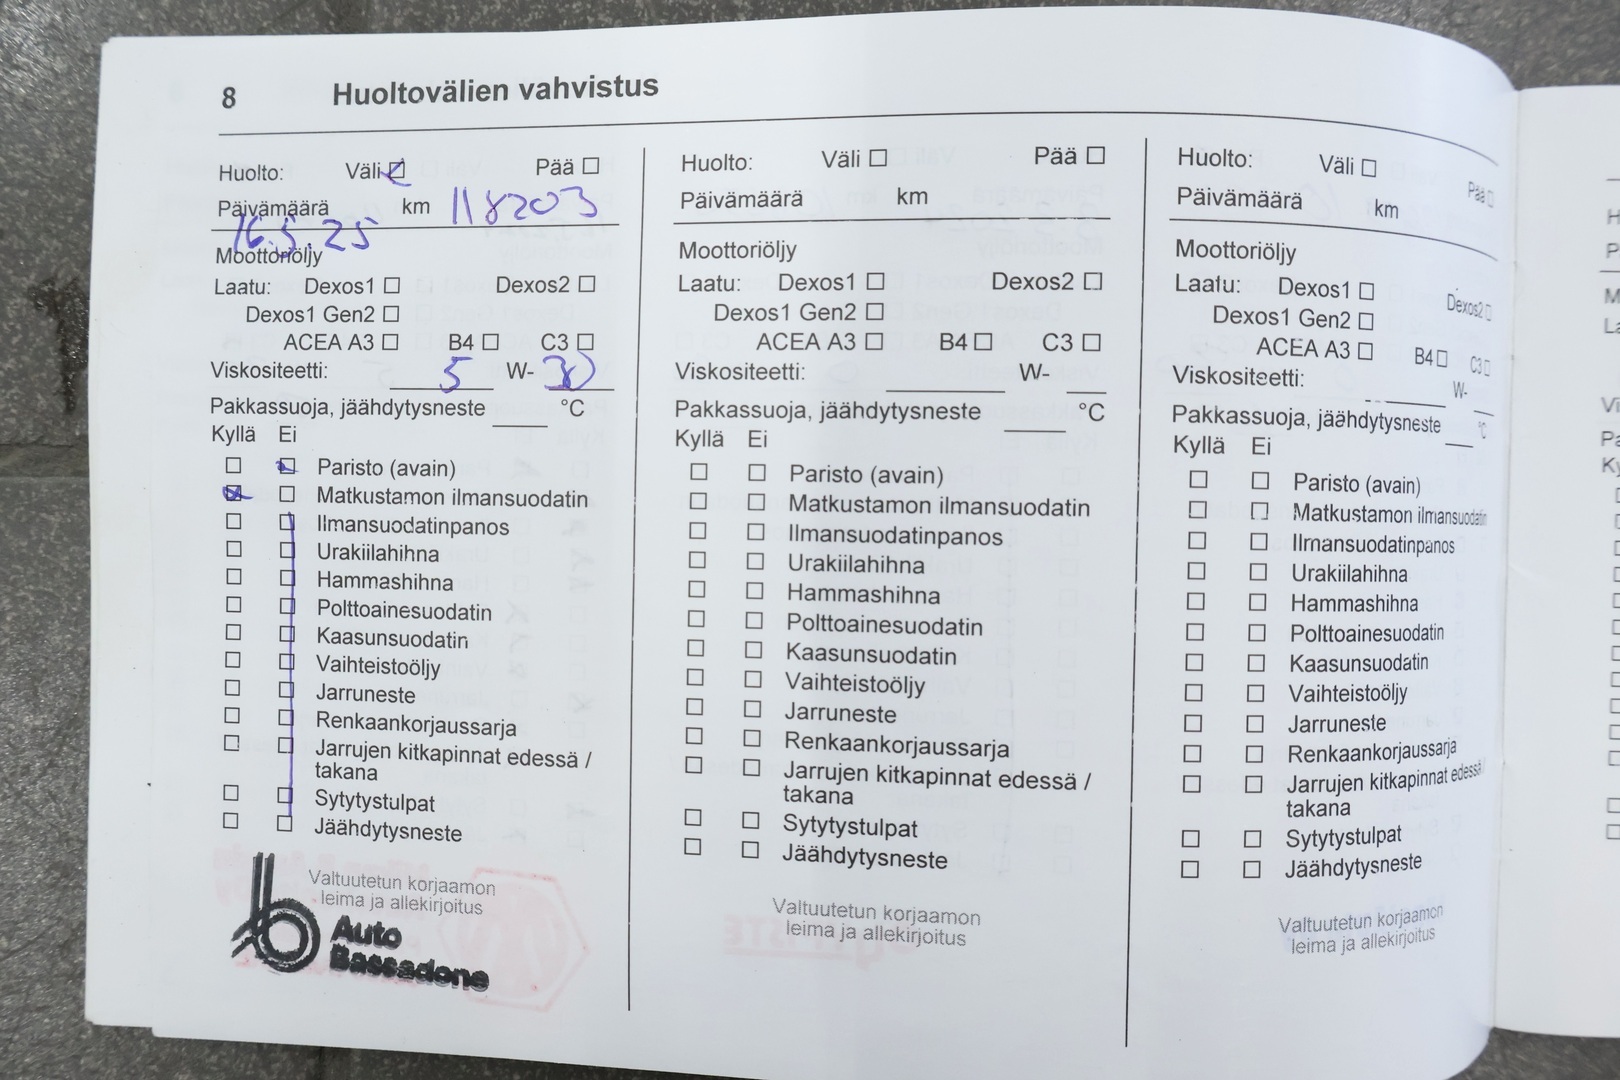 8 Huoltovälien vahvistus
Huolto: Väli Pää
Päivämäärä km 118203
16.5.25
Moottoriöljy
Laatu: Dexos1 Dexos2
Dexos1 Gen2
ACEA A3 B4 C3
Viskositeetti: 5 W- 30
Pakkassuoja, jäähdytysneste °C
Kyllä Ei
Paristo (avain)
Matkustamon ilmansuodatin
Ilmansuodatinpanos
Urakiilahihna
Hammashihna
Polttoainesuodatin
Kaasunsuodatin
Vaihteistoöljy
Jarruneste
Renkaankorjaussarja
Jarrujen kitkapinnat edessä /
takana
Sytytystulpat
Jäähdytysneste
Valtuutetun korjaamon
leima ja allekirjoitus
Auto
Bassadone
Huolto: Väli Pää
Päivämäärä km
Moottoriöljy
Laatu: Dexos1 Dexos2
Dexos1 Gen2
ACEA A3 B4 C3
Viskositeetti: W-
Pakkassuoja, jäähdytysneste °C
Kyllä Ei
Paristo (avain)
Matkustamon ilmansuodatin
Ilmansuodatinpanos
Urakiilahihna
Hammashihna
Polttoainesuodatin
Kaasunsuodatin
Vaihteistoöljy
Jarruneste
Renkaankorjaussarja
Jarrujen kitkapinnat edessä /
takana
Sytytystulpat
Jäähdytysneste
Valtuutetun korjaamon
leima ja allekirjoitus
Huolto: Väli Pää
Päivämäärä km
Moottoriöljy
Laatu: Dexos1 Dexos2
Dexos1 Gen2
ACEA A3 B4 C3
Viskositeetti: W-
Pakkassuoja, jäähdytysneste °C
Kyllä Ei
Paristo (avain)
Matkustamon ilmansuodatin
Ilmansuodatinpanos
Urakiilahihna
Hammashihna
Polttoainesuodatin
Kaasunsuodatin
Vaihteistoöljy
Jarruneste
Renkaankorjaussarja
Jarrujen kitkapinnat edessä /
takana
Sytytystulpat
Jäähdytysneste
Valtuutetun korjaamon
leima ja allekirjoitus